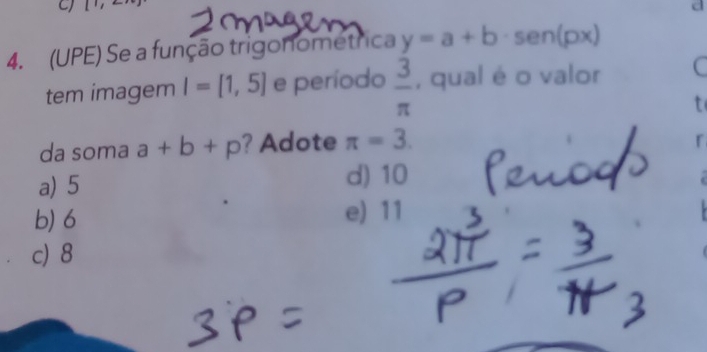 Imagem
4. (UPE) Se a função trigonométrica y = a + b · sen(px)
tem imagem I = [1, 5] e período 3/π, qual é o valor
da soma a + b + p? Adote π = 3.
a) 5
b) 6
c) 8
d) 10
e) 11
Periodo
2π 3 / P = 3 / π 3
3P =